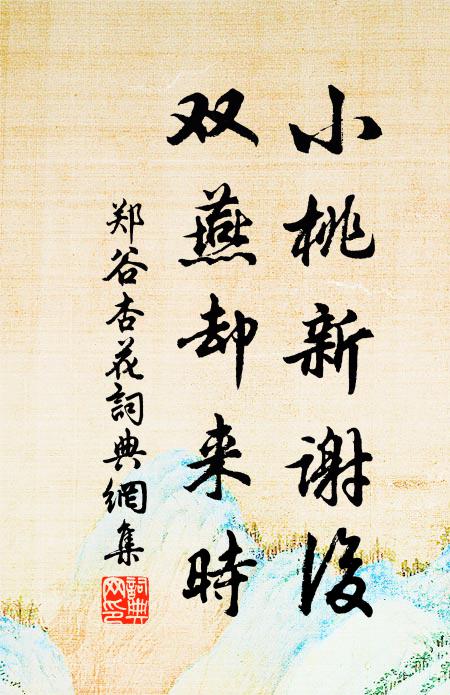 小桃新谢後
双燕却来時
郑谷杏花詞典網集
詞典网印